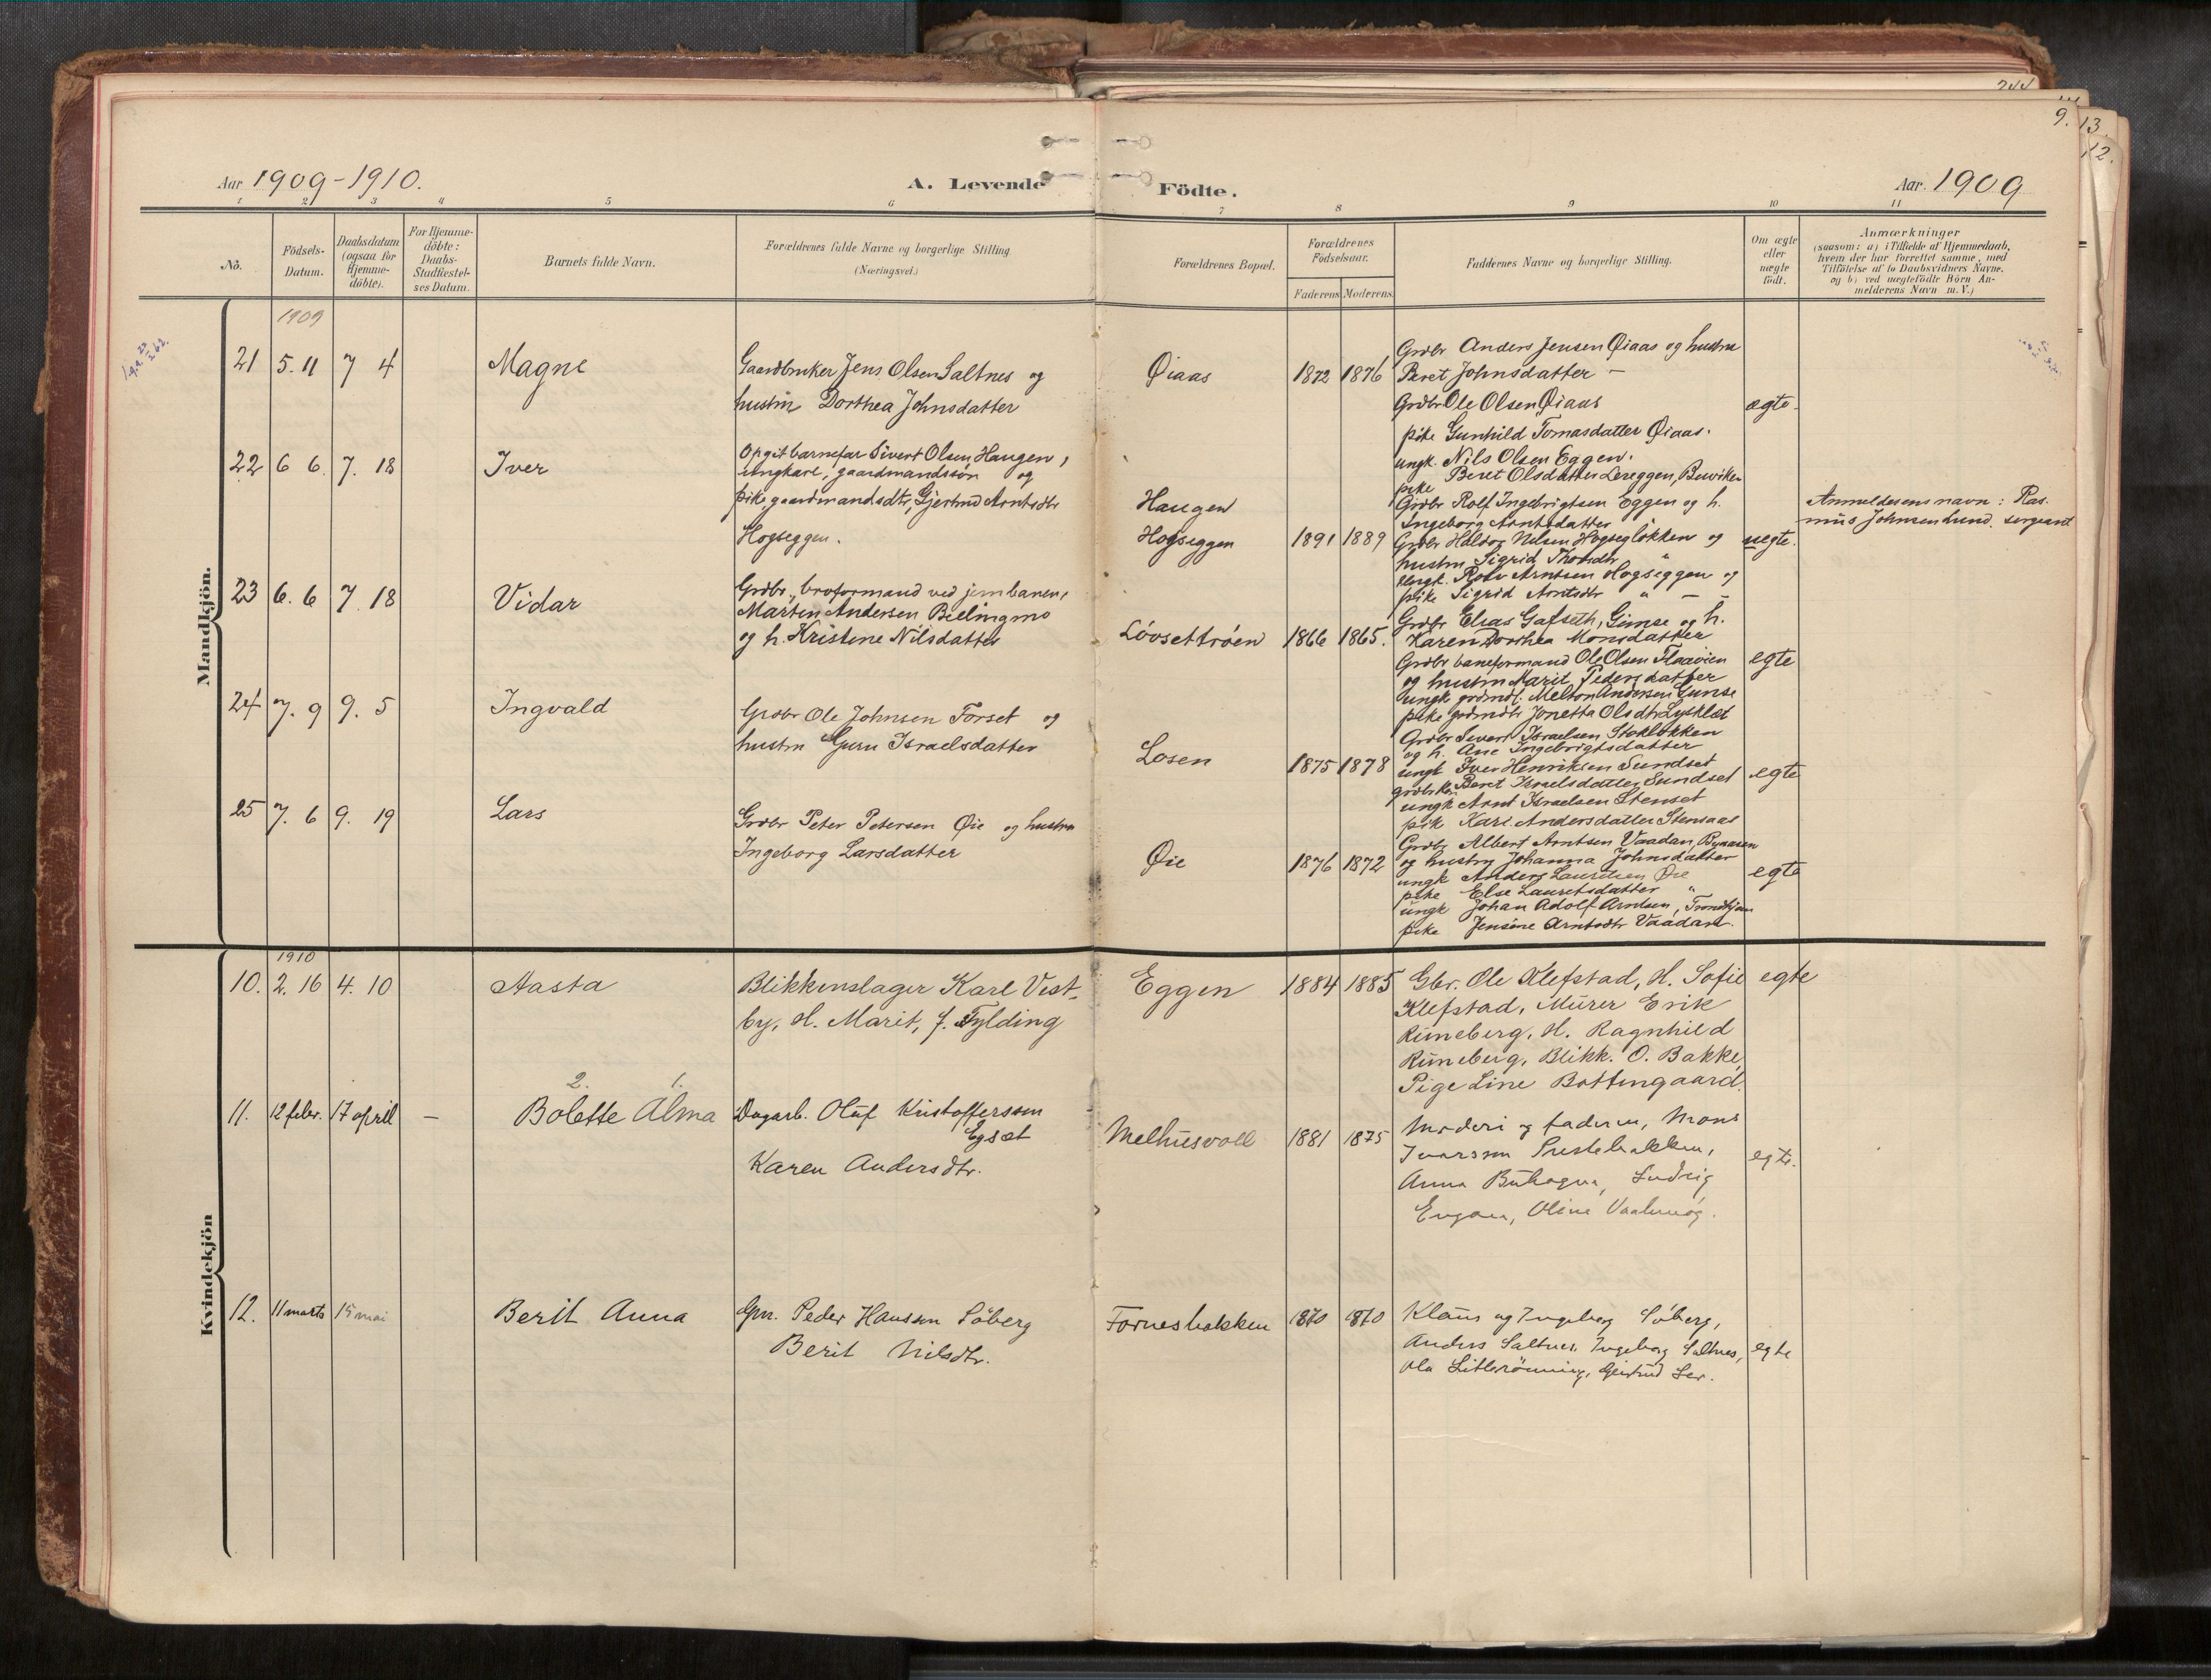 244
9.
13.
12.
Aar 1909-1910.
A. Levende
Födte.
Aar. 1909
1 2 3 4 5 6 7 8 9 10 11
No.
Födsels-Datum.
Daabsdatum (ogsaa for Hjemme-döbte).
For Hjemme-döbte: Daabs-Stadfæstel-ses Datum.
Barnets fulde Navn.
Forældrenes fulde Navne og borgerlige Stilling
(Næringsvei.)
Forældrenes Bopæl.
Forældrenes Födselsaar.
Faderens. Moderens.
Faddernes Navne og borgerlige Stilling.
Om ægte eller uægte födt.
Anmærkninger
(saasom: a) i Tilfælde af Hjemmedaab,
hvem der har forrettet samme, med
Tilföielse af to Daabsvidners Navne,
og b) ved uægtefödte Börn An-
melderens Navn m. V.)
Mandkjön.
1909
21 5. 11 7 4 Magne
Gaardbruker Jens Olsen Saltnes og
hustru Dorthea Johnsdatter
Øiaas 1872 1876
Grdbr Anders Jensen Øiaas og hustru
Beret Johnsdatter -
Grdbr Ole Olsen Øiaas
pike Gunhild Tomasdatter Øiaas.
ægte.
22 6 6. 7. 18 Iver
Opgit barnefar Sivert Olsen Haugen,
ungkarl, gaardmandssøn og
pike, gaardmandsdtr, Gjertrud Arntsdtr
Hogseggen.
Haugen
Hogseggen 1891 1889
ungk. Nils Olsen Eggen.
pike Beret Olsdatter Lereggen, Buviken
Grdbr Rolf Ingebrigtsen Eggen og h.
Ingeborg Arntsdatter
Grdbr Haldor Nilsen Hogsegløkken og
hustru Sigrid "
ungk. Rolv Arntsen Hogseggen og
pike Sigrid Arntsdtr " - -
uegte.
Anmelderens navn: Ras-
mus Johnsen Lund. sergeant
23 6. 6 7. 18 Vidar
Grdbr., broformand ved jernbanen,
Martin Andersen
og h. Kristine Nilsdatter
Løvsettrøen 1866 1865.
Grdbr Elias Gafseth, Gimse og h.
Karen Dorthea Monsdatter
Grdbr baneformand Ole Olsen
og hustru Marit Pedersdatter
ungk grdmds. Andersen Gimse
pike grdmdtr Jonetta Olsdtr
egte
24 7. 9 9. 5 Ingvald
Grdbr Ole Johnsen Forset og
hustru Guru Israelsdatter
Losen 1875 1878
Grdbr Sivert Israelsen Stokløkken
og h. Ane Ingebrigtsdatter
ungk Iver Henriksen Sundset
Beret Israelsdatter Sundset
ungk Arnt Israelsen Stenset
pik Kari Andersdatter Stensaas
egte
25 7. 6 9. 19 Lars
Grdbr Peter Petersen Øie og hustru
Ingeborg Larsdatter
Øie 1876 1872
Grdbr Albert Arntsen Vaadan, Bynæsen
og hustru Johanna Johnsdatter
ungk Anders Lauritsen Øie
pike Else Lauritsdatter "
ungk Johan Adolf Arntsen, Trondhjem
pike Jensine Arntsdtr Vaadan.
egte
Kvindekjön
1910
10. 2. 16 4. 10 Aasta
Blikkenslager Karl Vest-
by, H. Marit, f. Fylding
Eggen 1884 1885
Gbr. Ole Klefstad, H. Sofie
Klefstad, Murer Erik
Runeberg, H. Ragnhild
Runeberg, Blikk. O. Bakke,
Pige Line Bottengaard.
egte
11. 12 febr. 17 april -
2. 1.
Bolette Alma
Dagarb. Oluf Kristoffersen
Egset
Karen Andersdtr.
Melhusvoll 1881 1875
Moderen og faderen, Mons
Ivarsson Prestebakken,
Anna Ludvig
Engan, Oline
egte.
12. 11 marts 15 mai Berit Anna
Gm. Peder Hansson Söberg
Berit Nilsdtr.
Fornesbakken 1870 1870
Klaus og Ingeborg Söberg,
Anders Saltnes, Ingeborg Saltnes,
Ola Litlerönning, Gjertrud Ler.
egte